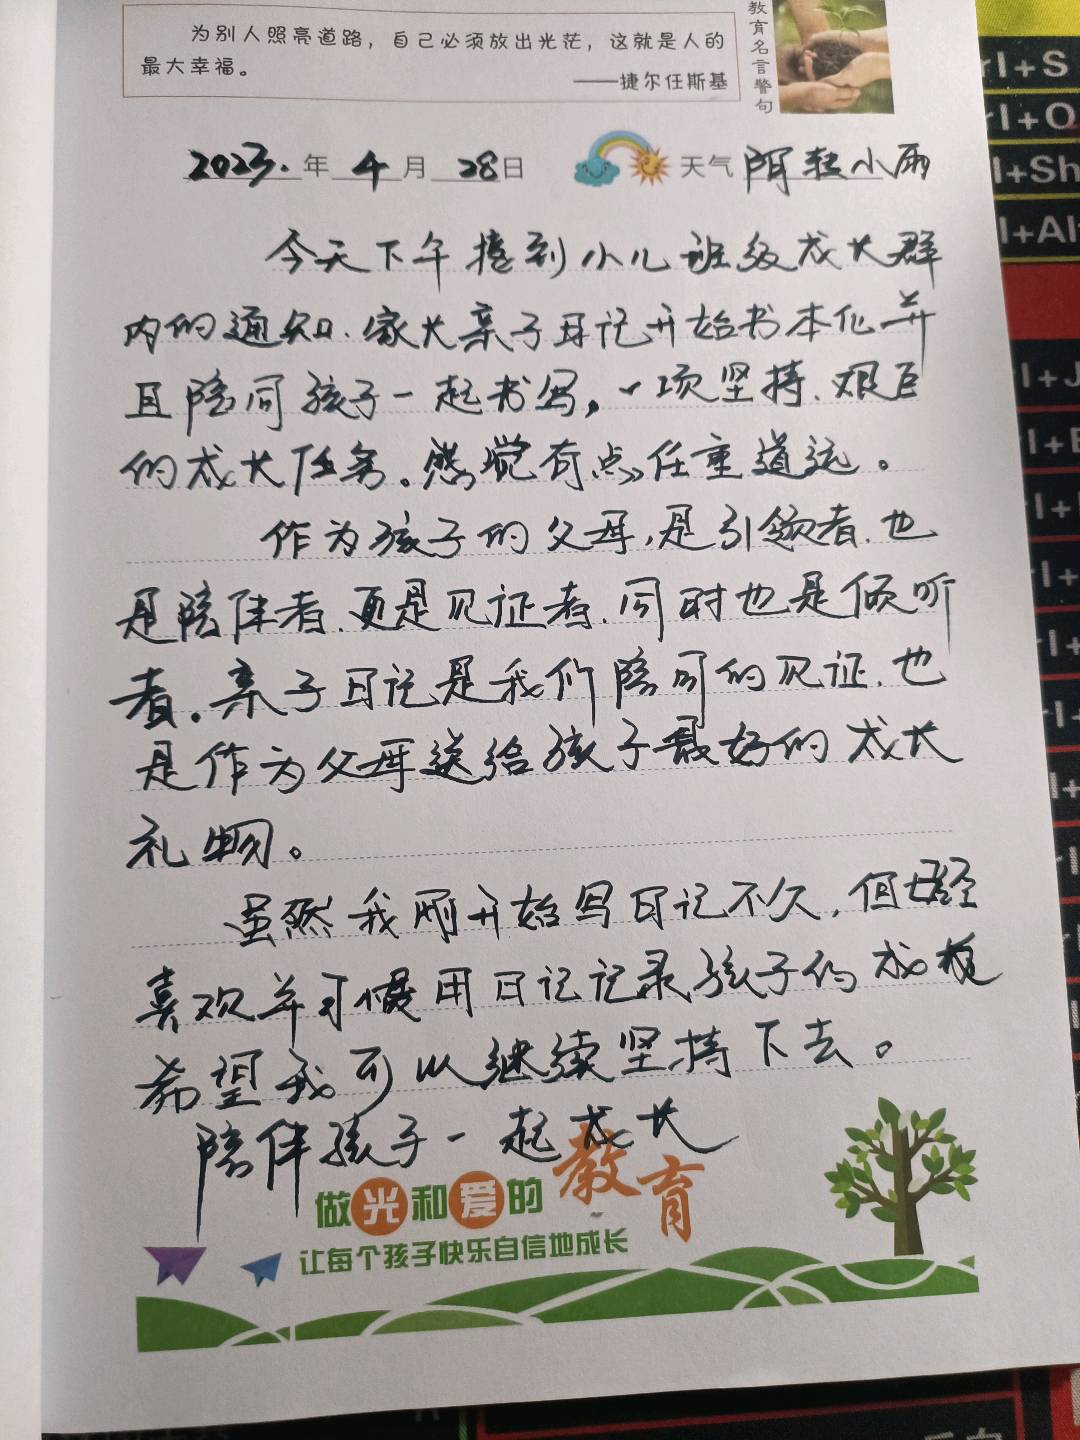 为别人照亮道路，自己必须放出光茫，这就是人的
最大幸福。
——捷尔任斯基
教育名言警句
2023.年 4月 28日 天气 阴转小雨
今天下午接到小儿班级成长群
内的通知、家长亲子日记开始书本化并
且陪同孩子一起书写，一项坚持、艰巨
的成长任务。感觉有点任重道远。
作为孩子的父母，是引领者、也
是陪伴者、更是见证者、同时也是倾听
者。亲子日记是我们陪同的见证、也
是作为父母送给孩子最好的成长
礼物。
虽然我刚开始写日记不久，但已经
喜欢并习惯用日记记录孩子的成长
希望我可以继续坚持下去。
陪伴孩子一起成长
做光和爱的教育
让每个孩子快乐自信地成长
rl+S
rl+O
l+Sh
l+Al
l+J